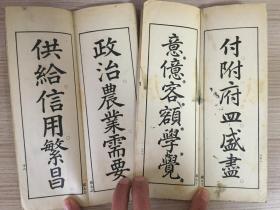 付附府皿盛盡
意憶客額學覺
政治農業需要
供給信用繁昌